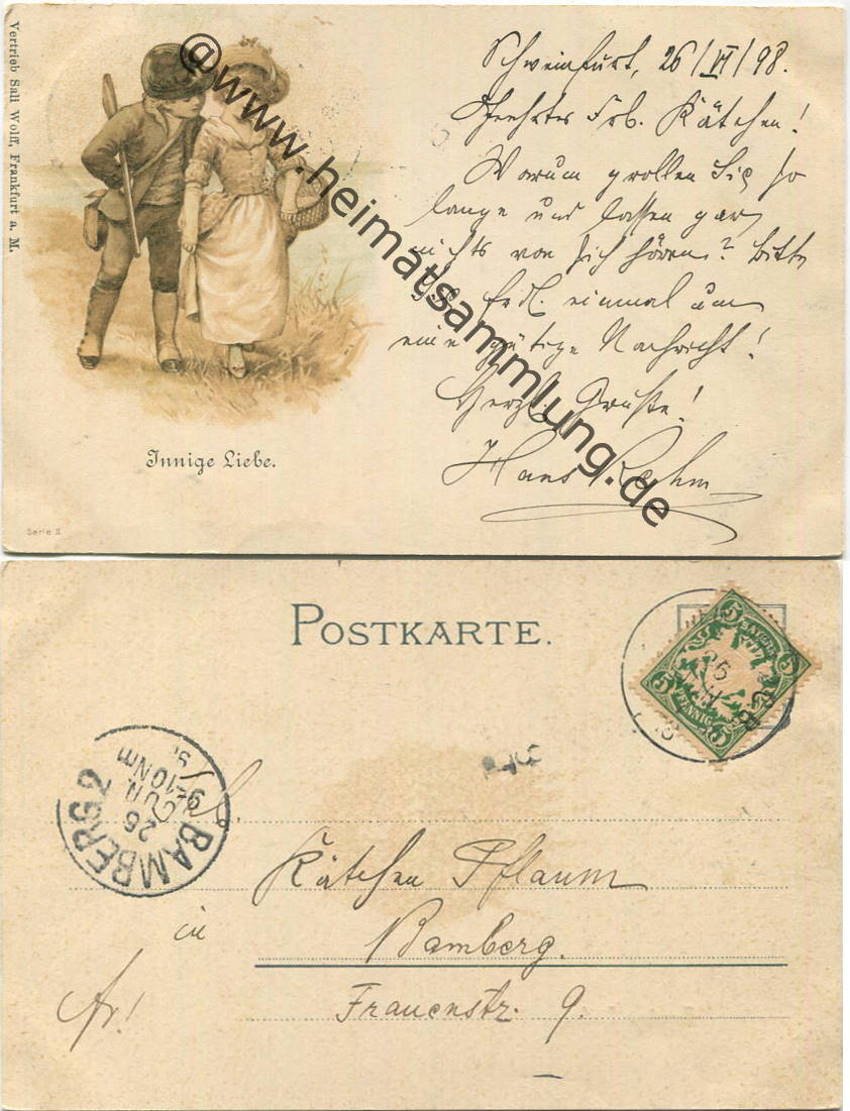 Vertrieb Sali Wolff, Frankfurt a. M.
@www.heimatsammlung.de
Schweinfurt, 26/VI/98.
Geehrtes Frl. Kätchen!
Warum grollen Sie so
lange und lassen gar
nichts von sich hören? Bitte
Frl. einmal um
eine gütige Nachricht!
Herzl. Grüße!
Hans
Innige Liebe.
Serie II
POSTKARTE.
5 5 5 5
BAYERN
PFENNIG
26
BAMBERG 2
26
JUN.
9-10 Nm
Frl.
Kätchen Pflaum
in Bamberg.
Fr! Frauenstr. 9.